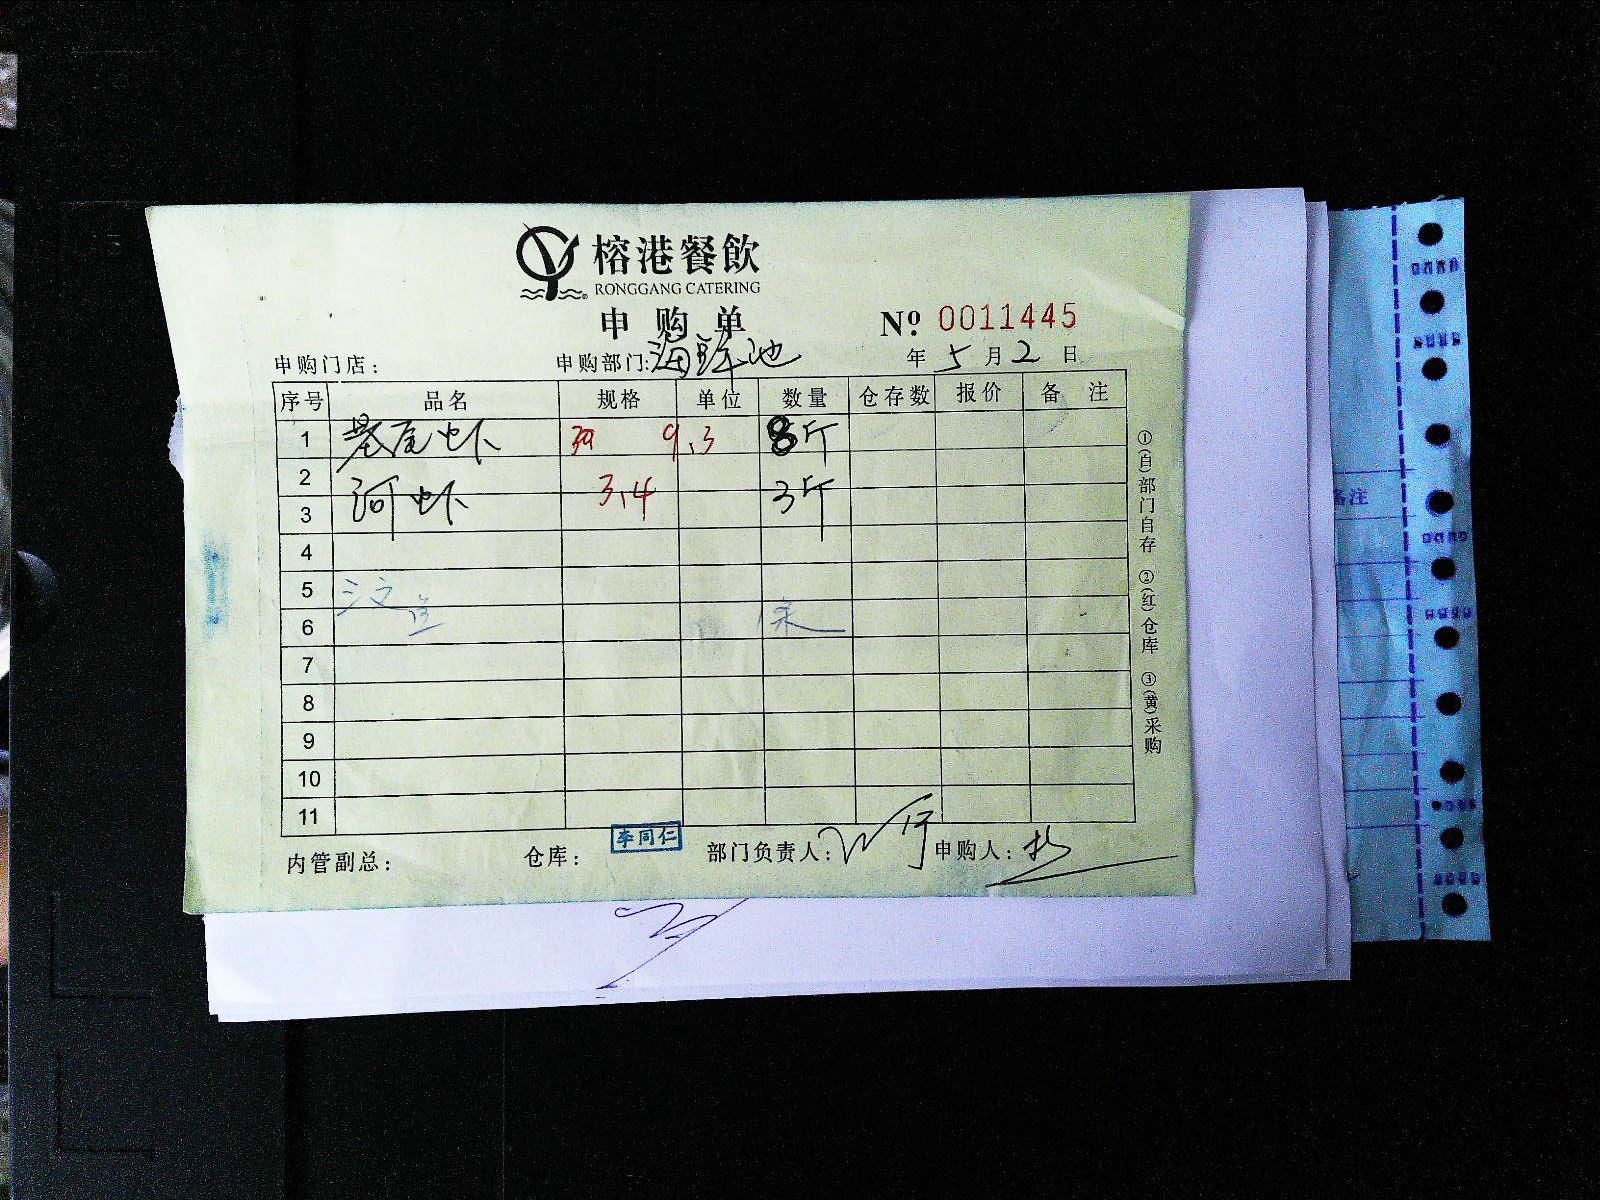 榕港餐飲
RONGGANG CATERING
申购单
№ 0011445
申购门店：
申购部门：海鲜池
年 5 月 2 日
序号 品名 规格 单位 数量 仓存数 报价 备注
1 基尾虾 9.3 8斤
2 河虾 3.4 3斤
3
4
5 三文
6 条
7
8
9
10
11
①(自)部门自存 ②(红)仓库 ③(黄)采购
内管副总：
仓库：李同仁
部门负责人：
申购人：
备注